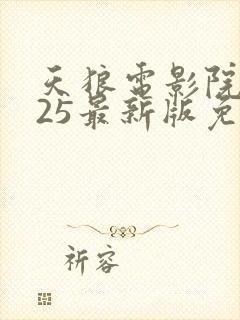 天狼雷影院
25最新版免
祈容